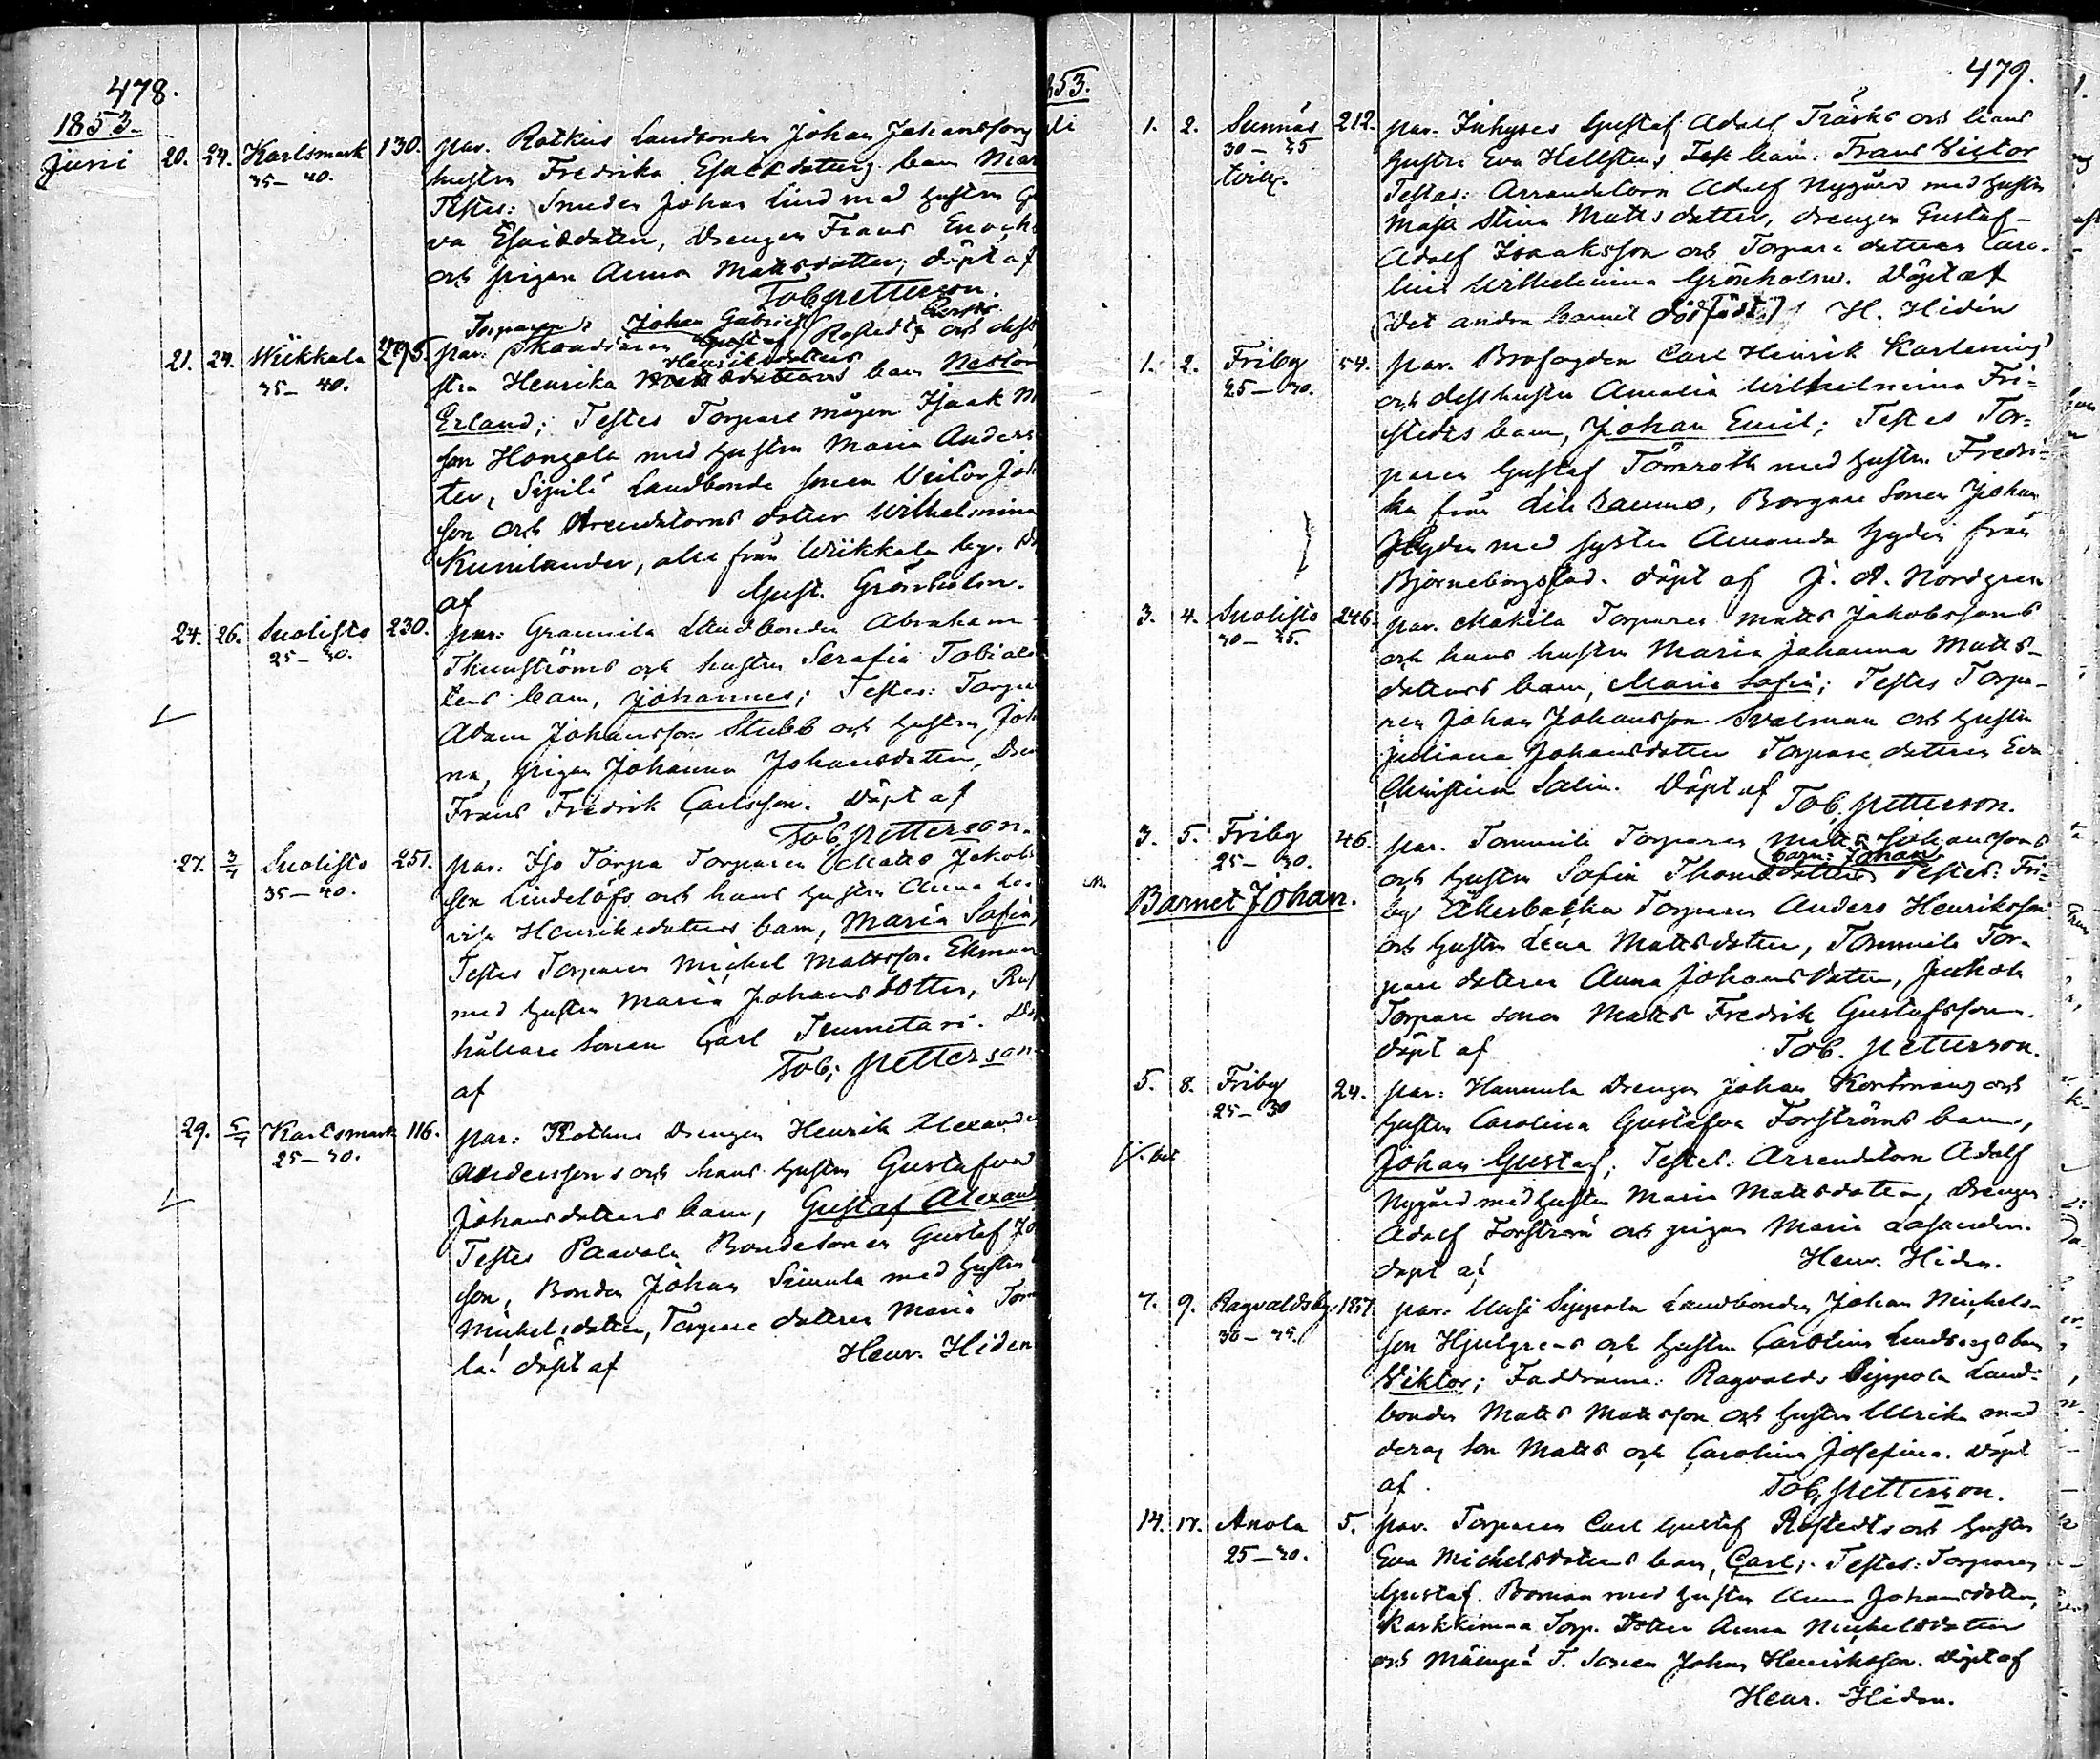 478.
1853.
Juni 20. 24. Karlsmark 130. par. Ratkus Landbonden Johan Johanssons
35-40. hustru Fredrika Esaiædotters barn Mar
Testes: Smeden Johan Lind med hustru
va Esaiædotter, Drengen Frans Enoch
och pigan Anna Mattsdotter; döpt af
Tob. Petterson.
Torparen Johan Gabriel
21. 24. Wiikkala 295. par: Gustaf Rostedts och dess
35-40. Henriksdotters
stru Henrika barn Nestor
Erland; Testes Torpare mågen Isaak M
son Hongola med hustru Maria Anders
ter, Sipilä Landbonde sonen Victor Joh
son och Arendatorns dotter Wilhelmina
Kumlander, alla från Wiikkala by.
af Gust. Grönholm.
24. 26. Suolisto 230. par: Grannila Landbonden Abraham
25-30. Thunströms och hustru Serafia Tobiæ
ters barn, Johannes; Testes: Torpa
Adam Johansson Stubb och hustru, Joh
na, pigan Johanna Johansdotter, Dren
Frans Fredrik Carlsson. Döpt af
Tob. Petterson.
27. 3/7 Suolisto 251. par: Iso Torpa Torparen Matts Jakobs
35-40. son Lindelöfs och hans hustru Anna Lo-
visa Henriksdotters barn, Maria Sofia
Testes Torparen Michel Mattsson Ekman
med hustru Maria Johansdotter, Rus
hållare sonen Carl Tuumetari.
af Tob. Petterson
29. 5/7 Karlsmark 116. par: Rotkus Drengen Henrik Alexander
25-30. Anderssons och hans hustru Gustafva
Johansdotters barn, Gustaf Alexand
Testes Paavola Bondesonen Gustaf Jo
son, Bonden Johan Simula med hustru
Michelsdotter, Torpare dottren Maria Tom
la. döpt af Henr. Hiden
479.
853.
uli 1. 2. Sunnäs 212. par. Inhyses Gustaf Adolf Träsks och hans
30-35 hustru Eva Hellstens barn: Frans Victor
tvill. Testes: Arrendatorn Adolf Nygård med hustru
Maja Stina Mattsdotter, drengen Gustaf
Adolf Isaaksson och Torpare dottren Caro-
lina Wilhelmina Grönholm. Döpt af
(Det andra barnet dödfödt) H. Hidén
1. 2. Friby 54. par. Brofogden Carl Henrik Karlenius
25-30. och dess hustru Amalia Wilhelmina Fri-
stedts barn, Johan Emil; Testes Tor-
paren Gustaf Törnroth med hustru Fredri-
ka från Lill Raumo, Borgare sonen Johan
Hyden med syster Amanda Hyden från
Björneborgs stad. döpt af J. A. Nordgren
3. 4. Suolisto 246. par. Mäkilä Torparen Matts Jakobssons
30-35. och hans hustru Maria Johanna Matts-
dotters barn, Maria Sofia; Testes Torpa-
ren Johan Johansson Svalman och hustru
Juliana Johansdotter Torpare dottren Eva
Christina Salin. Döpt af Tob. Petterson.
3. 5. Friby 46. par. Tommila Torparen Matts Johanssons
25-30. barn: Johan
och hustru Sofia Thomædotters Testes: Fri-
Barnet Johan.
by Åkerbacka Torparen Anders Henriksson
och hustru Lena Mattsdotter, Tommila Tor-
pare dottren Anna Johansdotter, Juthola
Torpare sonen Matts Fredrik Gustafsson.
döpt af Tob. Petterson.
5. 8. Friby 24. par: Hannula Drengen Johan Kortmans och
25-30 hustru Carolina Gustafva Forströms barn,
Johan Gustaf; Testes: Arrendatorn Adolf
Nygård med hustru Maria Mattsdotter, Drengen
Adolf Forström och pigan Maria Lasander.
döpt af Henr. Hiden.
7. 9. Ragvaldsby 187. par. Uusi Sippola Landbonden Johan Michels-
30-35. son Hjulgrens och hustru Carolina Lindbergs barn
Viktor; Faddrarne: Ragvalds Sippola Land-
bonden Matts Mattsson och hustru Ulrika med
deras son Matts och Carolina Josefina. Döpt
af Tob. Petterson.
14. 17. Anola 5. par. Torparen Carl Gustaf Rostedts och hustru
25-30. Eva Michelsdotters barn, Carl; Testes: Torparen
Gustaf Boman med hustru Anna Johansdotter,
Karkkimaa Torp. Dotter Anna Michelsdotter
och Mäenpää T. sonen Johan Henriksson. Döpt af
Henr. Hiden.